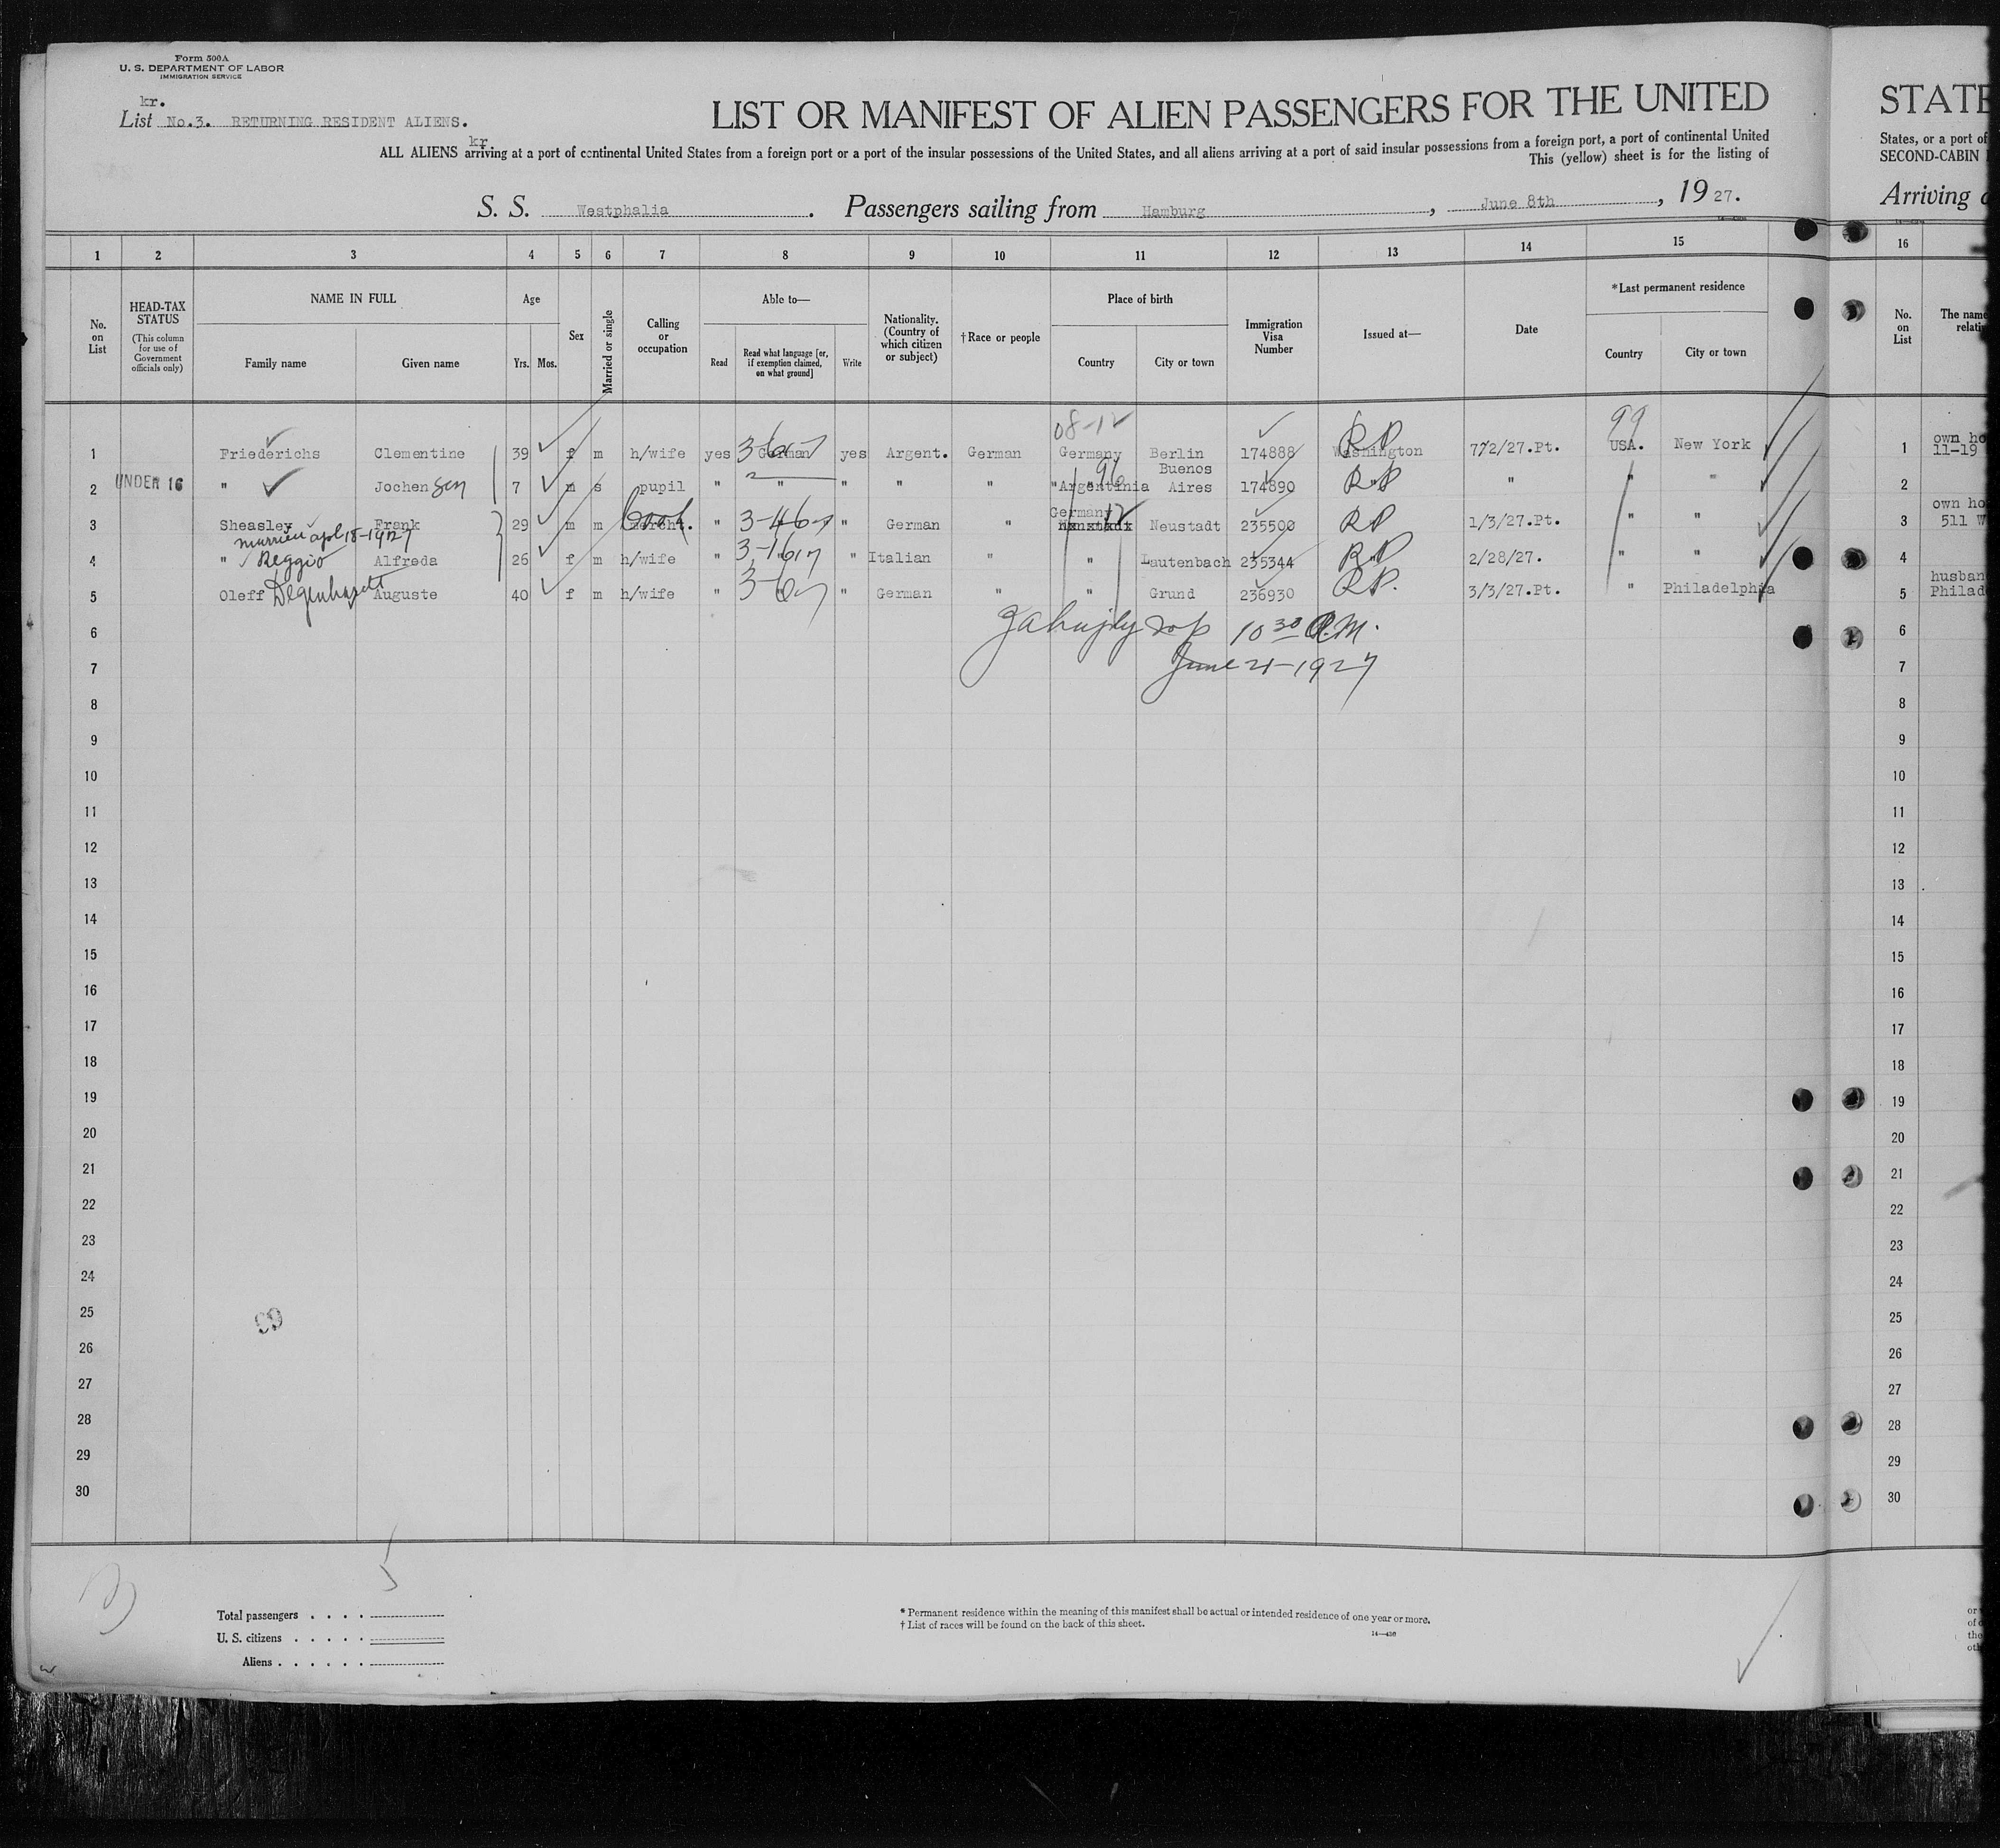 Form 500A
U. S. DEPARTMENT OF LABOR
IMMIGRATION SERVICE
kr.
List No.3. RETURNING RESIDENT ALIENS.
LIST OR MANIFEST OF ALIEN PASSENGERS FOR THE UNITED
STATE
kr
ALL ALIENS arriving at a port of continental United States from a foreign port or a port of the insular possessions of the United States, and all aliens arriving at a port of said insular possessions from a foreign port, a port of continental United
States, or a port of
This (yellow) sheet is for the listing of
SECOND-CABIN
S. S. Westphalia . Passengers sailing from Hamburg , June 8th , 19 27.
Arriving
1 2 3 4 5 6 7 8 9 10 11 12 13 14 15 16
No. on List
HEAD-TAX STATUS
(This column for use of Government officials only)
NAME IN FULL
Family name Given name
Age
Yrs. Mos.
Sex
Married or single
Calling or occupation
Able to—
Read
Read what language [or, if exemption claimed, on what ground]
Write
Nationality. (Country of which citizen or subject)
†Race or people
Place of birth
Country City or town
Immigration Visa Number
Issued at—
Date
*Last permanent residence
Country City or town
No. on List
The name
08-12 99
1 Friederichs Clementine 39 f m h/wife yes German yes Argent. German Germany Berlin 174888 Washington RP 7/2/27.Pt. USA. New York 1 own ho
11-19
UNDER 16
2 " Jochen 7 m s pupil " " " " " "Argentinia Buenos Aires 174890 RP " " " 2
96
3 Sheasley Frank 29 m m Cook. " 3-4-6-7 " German " Germany Neustadt 235500 RP 1/3/27.Pt. " " 3 own ho
511 W
married apl 18-1927
4 " Reggio Alfreda 26 f m h/wife " " Italian " " Lautenbach 235344 RP 2/28/27. " " 4
5 Oleff Degenhardt Auguste 40 f m h/wife " " German " " Grund 236930 RP. 3/3/27.Pt. " Philadelphia 5 husban
Philad
10 30 A.M.
June 21-1927
6 6
7 7
8 8
9 9
10 10
11 11
12 12
13 13
14 14
15 15
16 16
17 17
18 18
19 19
20 20
21 21
22 22
23 23
24 24
25 25
26 26
27 27
28 28
29 29
30 30
5
Total passengers . . . .
U. S. citizens . . . . .
Aliens . . . . . .
* Permanent residence within the meaning of this manifest shall be actual or intended residence of one year or more.
† List of races will be found on the back of this sheet.